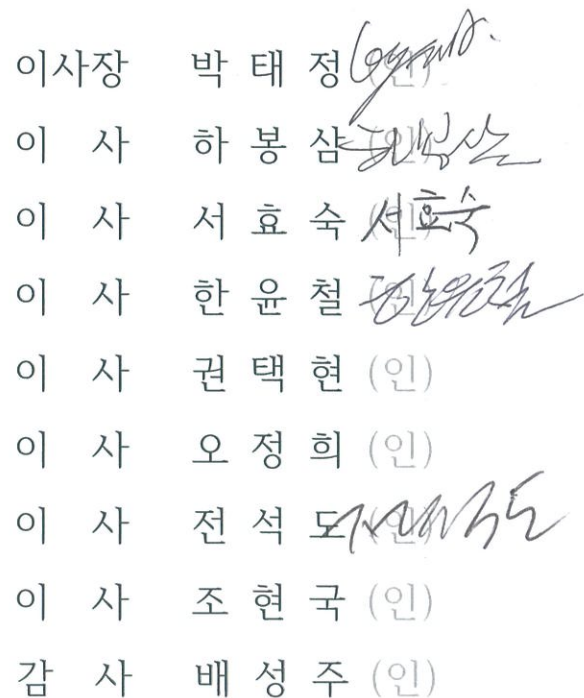 이사장 박 태 정 (인)
이 사 하 봉 삼 (인) 하봉삼
이 사 서 효 숙 (인) 서효숙
이 사 한 윤 철 (인) 한윤철
이 사 권 택 현 (인)
이 사 오 정 희 (인)
이 사 전 석 도 (인) 전석도
이 사 조 현 국 (인)
감 사 배 성 주 (인)